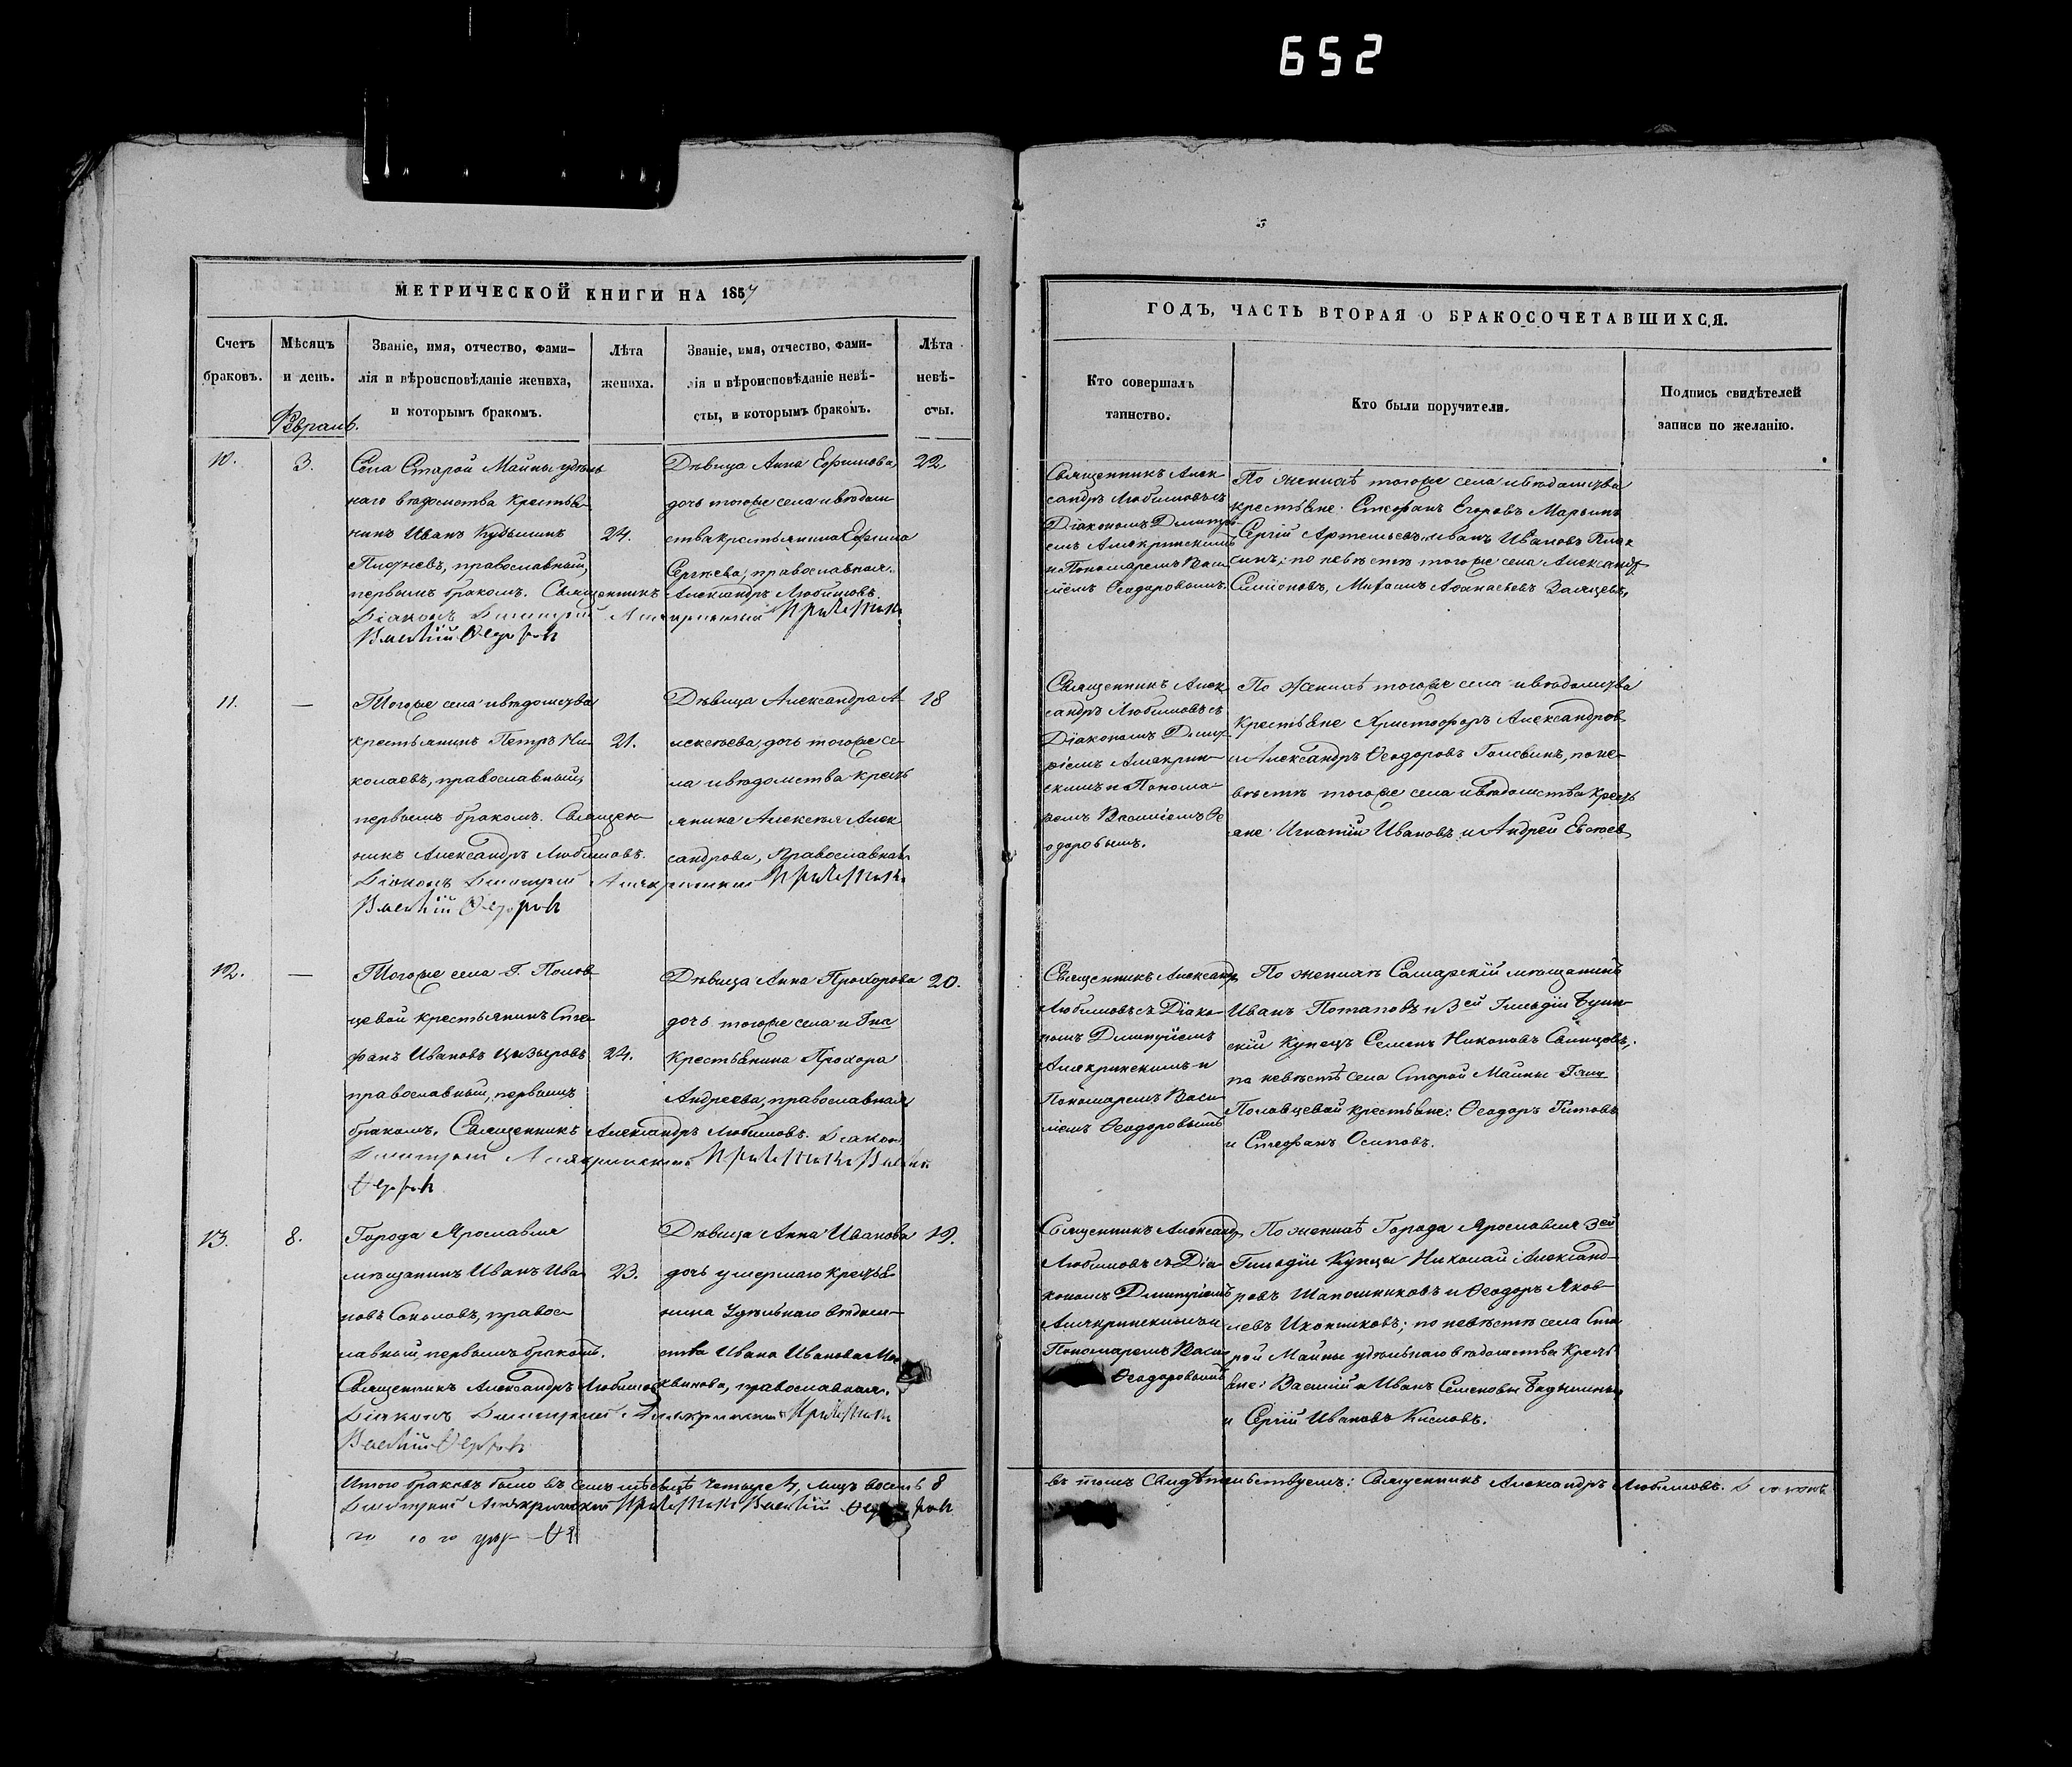 652
МЕТРИЧЕСКОЙ КНИГИ НА 1857
Счетъ браковъ.
Мѣсяцъ и день.
Званіе, имя, отчество, фами-
лія и вѣроисповѣданіе жениха,
и которымъ бракомъ.
Лѣта жениха.
Званіе, имя, отчество, фами-
лія и вѣроисповѣданіе невѣ-
сты, и которымъ бракомъ.
Лѣта невѣ-
сты.
10.
3.
Села Старой Майны удѣль
наго вѣдомства крестья-
нинъ Иванъ Кузьминъ
православный,
первымъ бракомъ. Священникъ Александръ Любимовъ.
Діаконъ Димитрій
24.
Дѣвица Анна Ефимова,
дочь тогоже села и вѣдом
ства крестьянина Ефима
Сергѣева, православная.
22
11.
—
Тогоже села и вѣдомства
крестьянинъ Петръ Ни-
колаевъ, православный,
первымъ бракомъ. Священ-
никъ Александръ Любимовъ.
Діаконъ Димитрій
21.
Дѣвица Александра А-
лексѣева, дочь тогоже се-
ла и вѣдомства кресть
янина Алексѣя Алек
сандрова, православная
18
12.
—
Тогоже села Г. Полов-
цевой крестьянинъ Сте-
фанъ Ивановъ
православный, первымъ
бракомъ. Священникъ Александръ Любимовъ. Діаконъ
Димитрій
24.
Дѣвица Анна Прохорова
дочь тогоже села и Гжи
крестьянина Прохора
Андреева, православная
20.
13.
8.
Города Ярославля
мѣщанинъ Иванъ Ива
новъ Соколовъ, правос-
лавный, первымъ бракомъ.
Священникъ Александръ Любимов
Діаконъ Димитрій
23.
Дѣвица Анна Иванова
дочь умершаго крестья-
нина Удѣльнаго вѣдом-
ства Ивана Иванова Мо
квинова, православная.
19.
Итого браковъ было въ семъ мѣсяцѣ четыре 4, лицъ восемь 8
Димитрій
ГОДЪ, ЧАСТЬ ВТОРАЯ О БРАКОСОЧЕТАВШИХСЯ.
Кто совершалъ таинство.
Кто были поручители.
Подпись свидѣтелей
записи по желанію.
Священникъ Алек
сандръ Любимовъ съ
Діакономъ Димитрі-
емъ Алякринскимъ
и Пономаремъ Васи
ліемъ Ѳеодоровымъ.
По женихѣ тогоже села и вѣдомства
крестьяне: Стефанъ Егоровъ Марьинъ
Сергій Артемьевъ, Иванъ Ивановъ
по невѣстѣ тогоже села Александръ
Симіоновъ, Аѳанасьевъ
Священникъ Алек
сандръ Любимовъ съ
Діакономъ Димит
ріемъ Алякрин-
скимъ и Понома-
ремъ Василіемъ Ѳе
одоровымъ.
По женихѣ тогоже села и вѣдомства
крестьяне Христофоръ Александров
и Александръ Ѳеодоровъ Головинъ, по не-
вѣстѣ тогоже села и вѣдомства кресть
яне: Игнатій Ивановъ и Андрей
Священникъ Александръ
Любимовъ съ Діако-
номъ Димитріемъ
Алякринскимъ и
Пономаремъ Васи
ліемъ Ѳеодоровымъ
По женихѣ Самарскій мѣщанинъ
Иванъ Потаповъ и 3ей Гильдіи
скій купецъ Семенъ Никоновъ
по невѣстѣ села Старой Майны Гжи
Половцевой крестьяне: Ѳеодоръ Титовъ
и Стефанъ Осиповъ.
Священникъ Александръ
Любимовъ съ Діа-
кономъ Димитріемъ
Алякринскимъ и
Пономаремъ Васи
Ѳеодоровымъ
По женихѣ Города Ярославля 3ей
Гильдіи купцы Николай Александ-
ровъ Шапошниковъ и Ѳеодоръ Яков-
левъ Иконниковъ; по невѣстѣ села Ста
рой Майны удѣльнаго вѣдомства кресть
яне: Василій и Иванъ Семеновы
и Сергій Ивановъ Кисловъ.
въ томъ свидѣтельствуемъ: Священникъ Александръ Любимовъ. Діаконъ